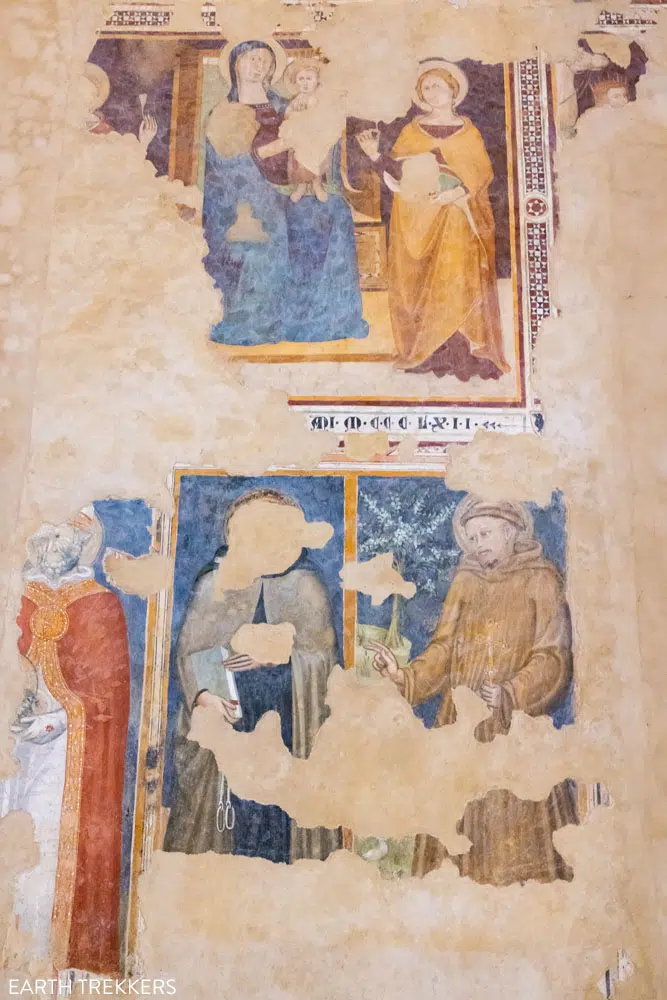 M·M·C·C·C L·X·I·I·
EARTH TREKKERS